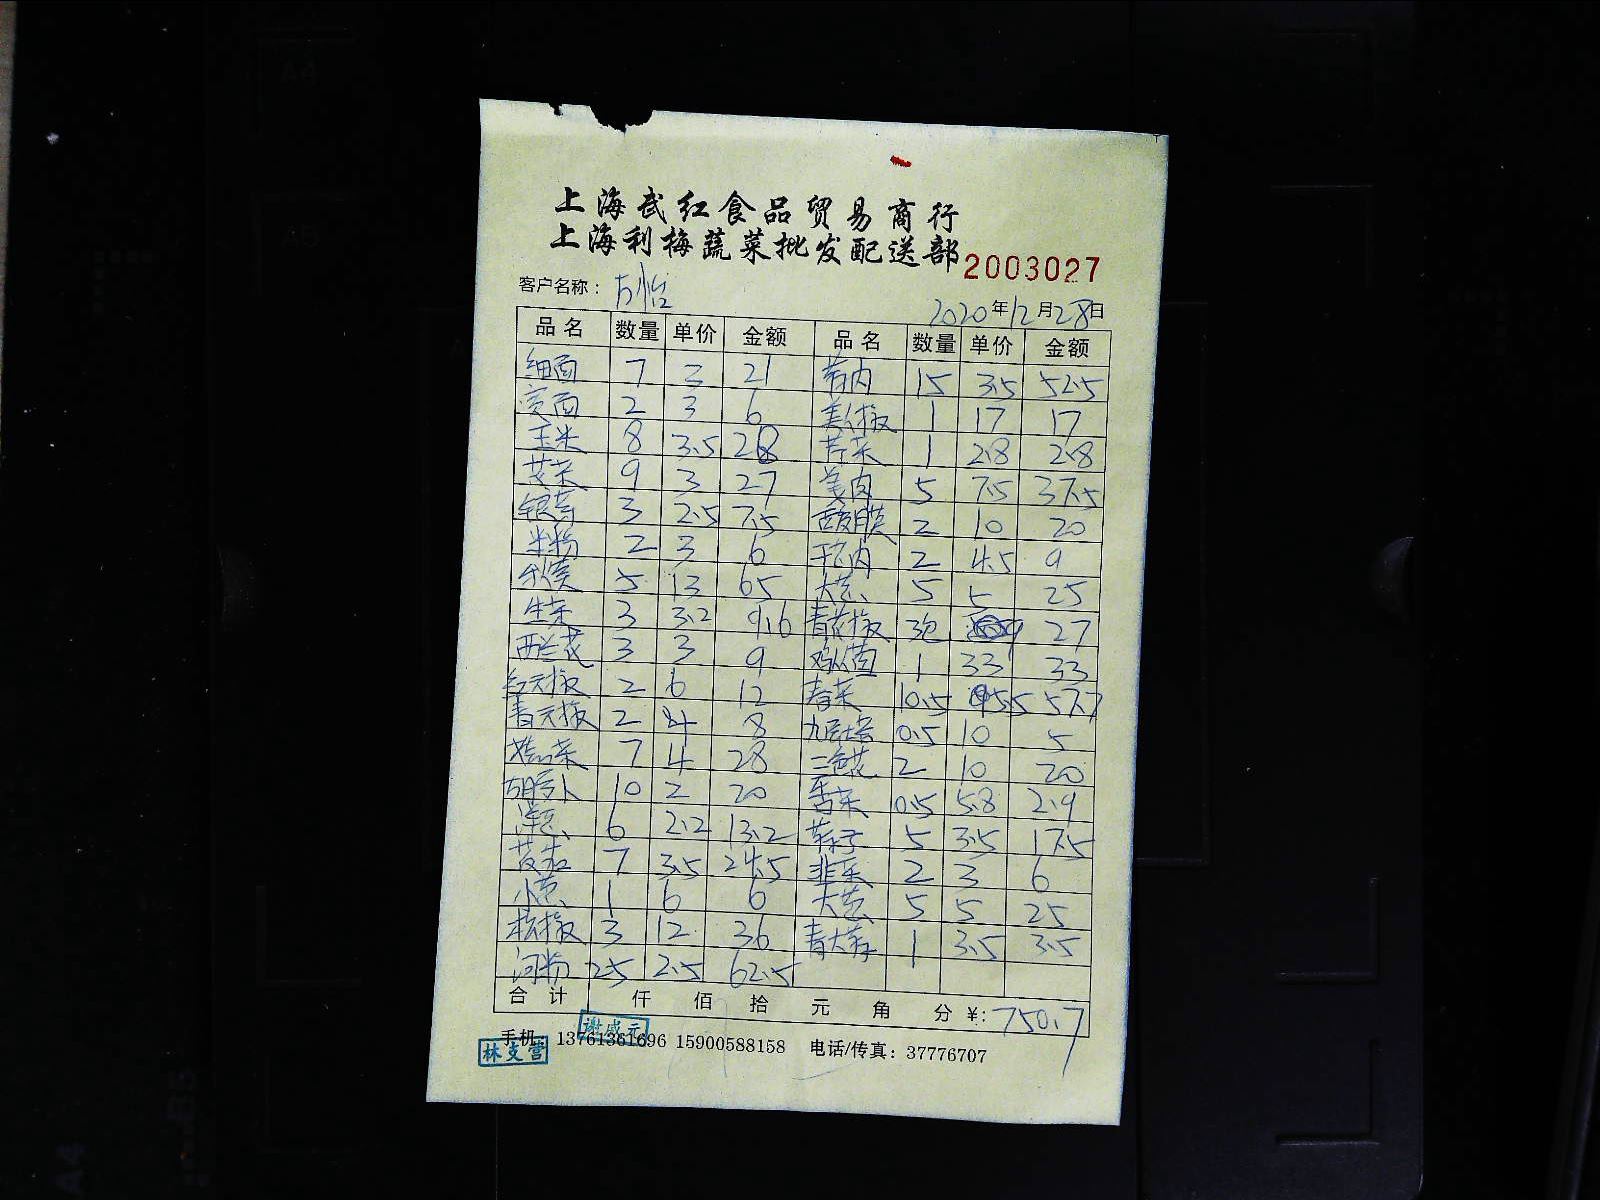 上海武红食品贸易商行
上海利梅蔬菜批发配送部 2003027
客户名称： 方怡 2020年12月28日
品名 数量 单价 金额 品名 数量 单价 金额
细面 7 3 21 15 3.5 52.5
宽面 2 3 6 美人椒 1 17 17
玉米 8 3.5 28 芹菜 1 2.8 2.8
9 3 27 5 7.5 37.5
银芽 3 2.5 7.5 2 10 20
米粉 2 3 6 2 4.5 9
5 13 65 大葱 5 5 25
生菜 3 3.2 9.6 青花椒 3包 9 27
西兰花 3 3 9 鸡枞菌 1 33 33
红元椒 2 6 12 10.5 5.5 57.7
青元椒 2 4 8 九层塔 0.5 10 5
7 4 28 三色花 2 10 20
胡萝卜 10 2 20 香菜 0.5 5.8 2.9
洋葱 6 2.2 13.2 茄子 5 3.5 17.5
7 3.5 24.5 韭菜 2 3 6
小葱 1 6 6 大葱 5 5 25
3 12 36 1 3.5 3.5
河粉 25 2.5 62.5
合计 仟 佰 拾 元 角 分 ¥: 750.7
谢盛元
手机： 13761361696 15900588158 电话/传真：37776707
林支营